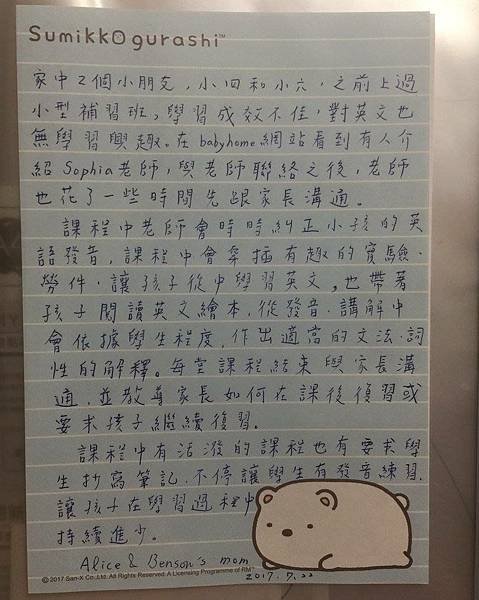 Sumikko gurashi™
家中2個小朋友,小四和小六,之前上過
小型補習班,學習成效不佳,對英文也
無學習興趣。在babyhome網站看到有人介
紹Sophia老師,與老師聯絡之後,老師
也花了一些時間先跟家長溝通。
課程中老師會時時糾正小孩的英
語發音,課程中會穿插有趣的實驗、
勞作,讓孩子從中學習英文,也帶著
孩子閱讀英文繪本,從發音、講解中
會依據學生程度,作出適當的文法、詞
性的解釋。每堂課程結束與家長溝
通,並教導家長如何在課後復習或
要求孩子繼續復習。
課程中有活潑的課程也有要求學
生抄寫筆記,不停讓學生有發音練習,
讓孩子在學習過程中
持續進步。
Alice & Benson's mom
2017.7.22
© 2017 San-X Co.,Ltd. All Rights Reserved. A Licensing Programme of RM™